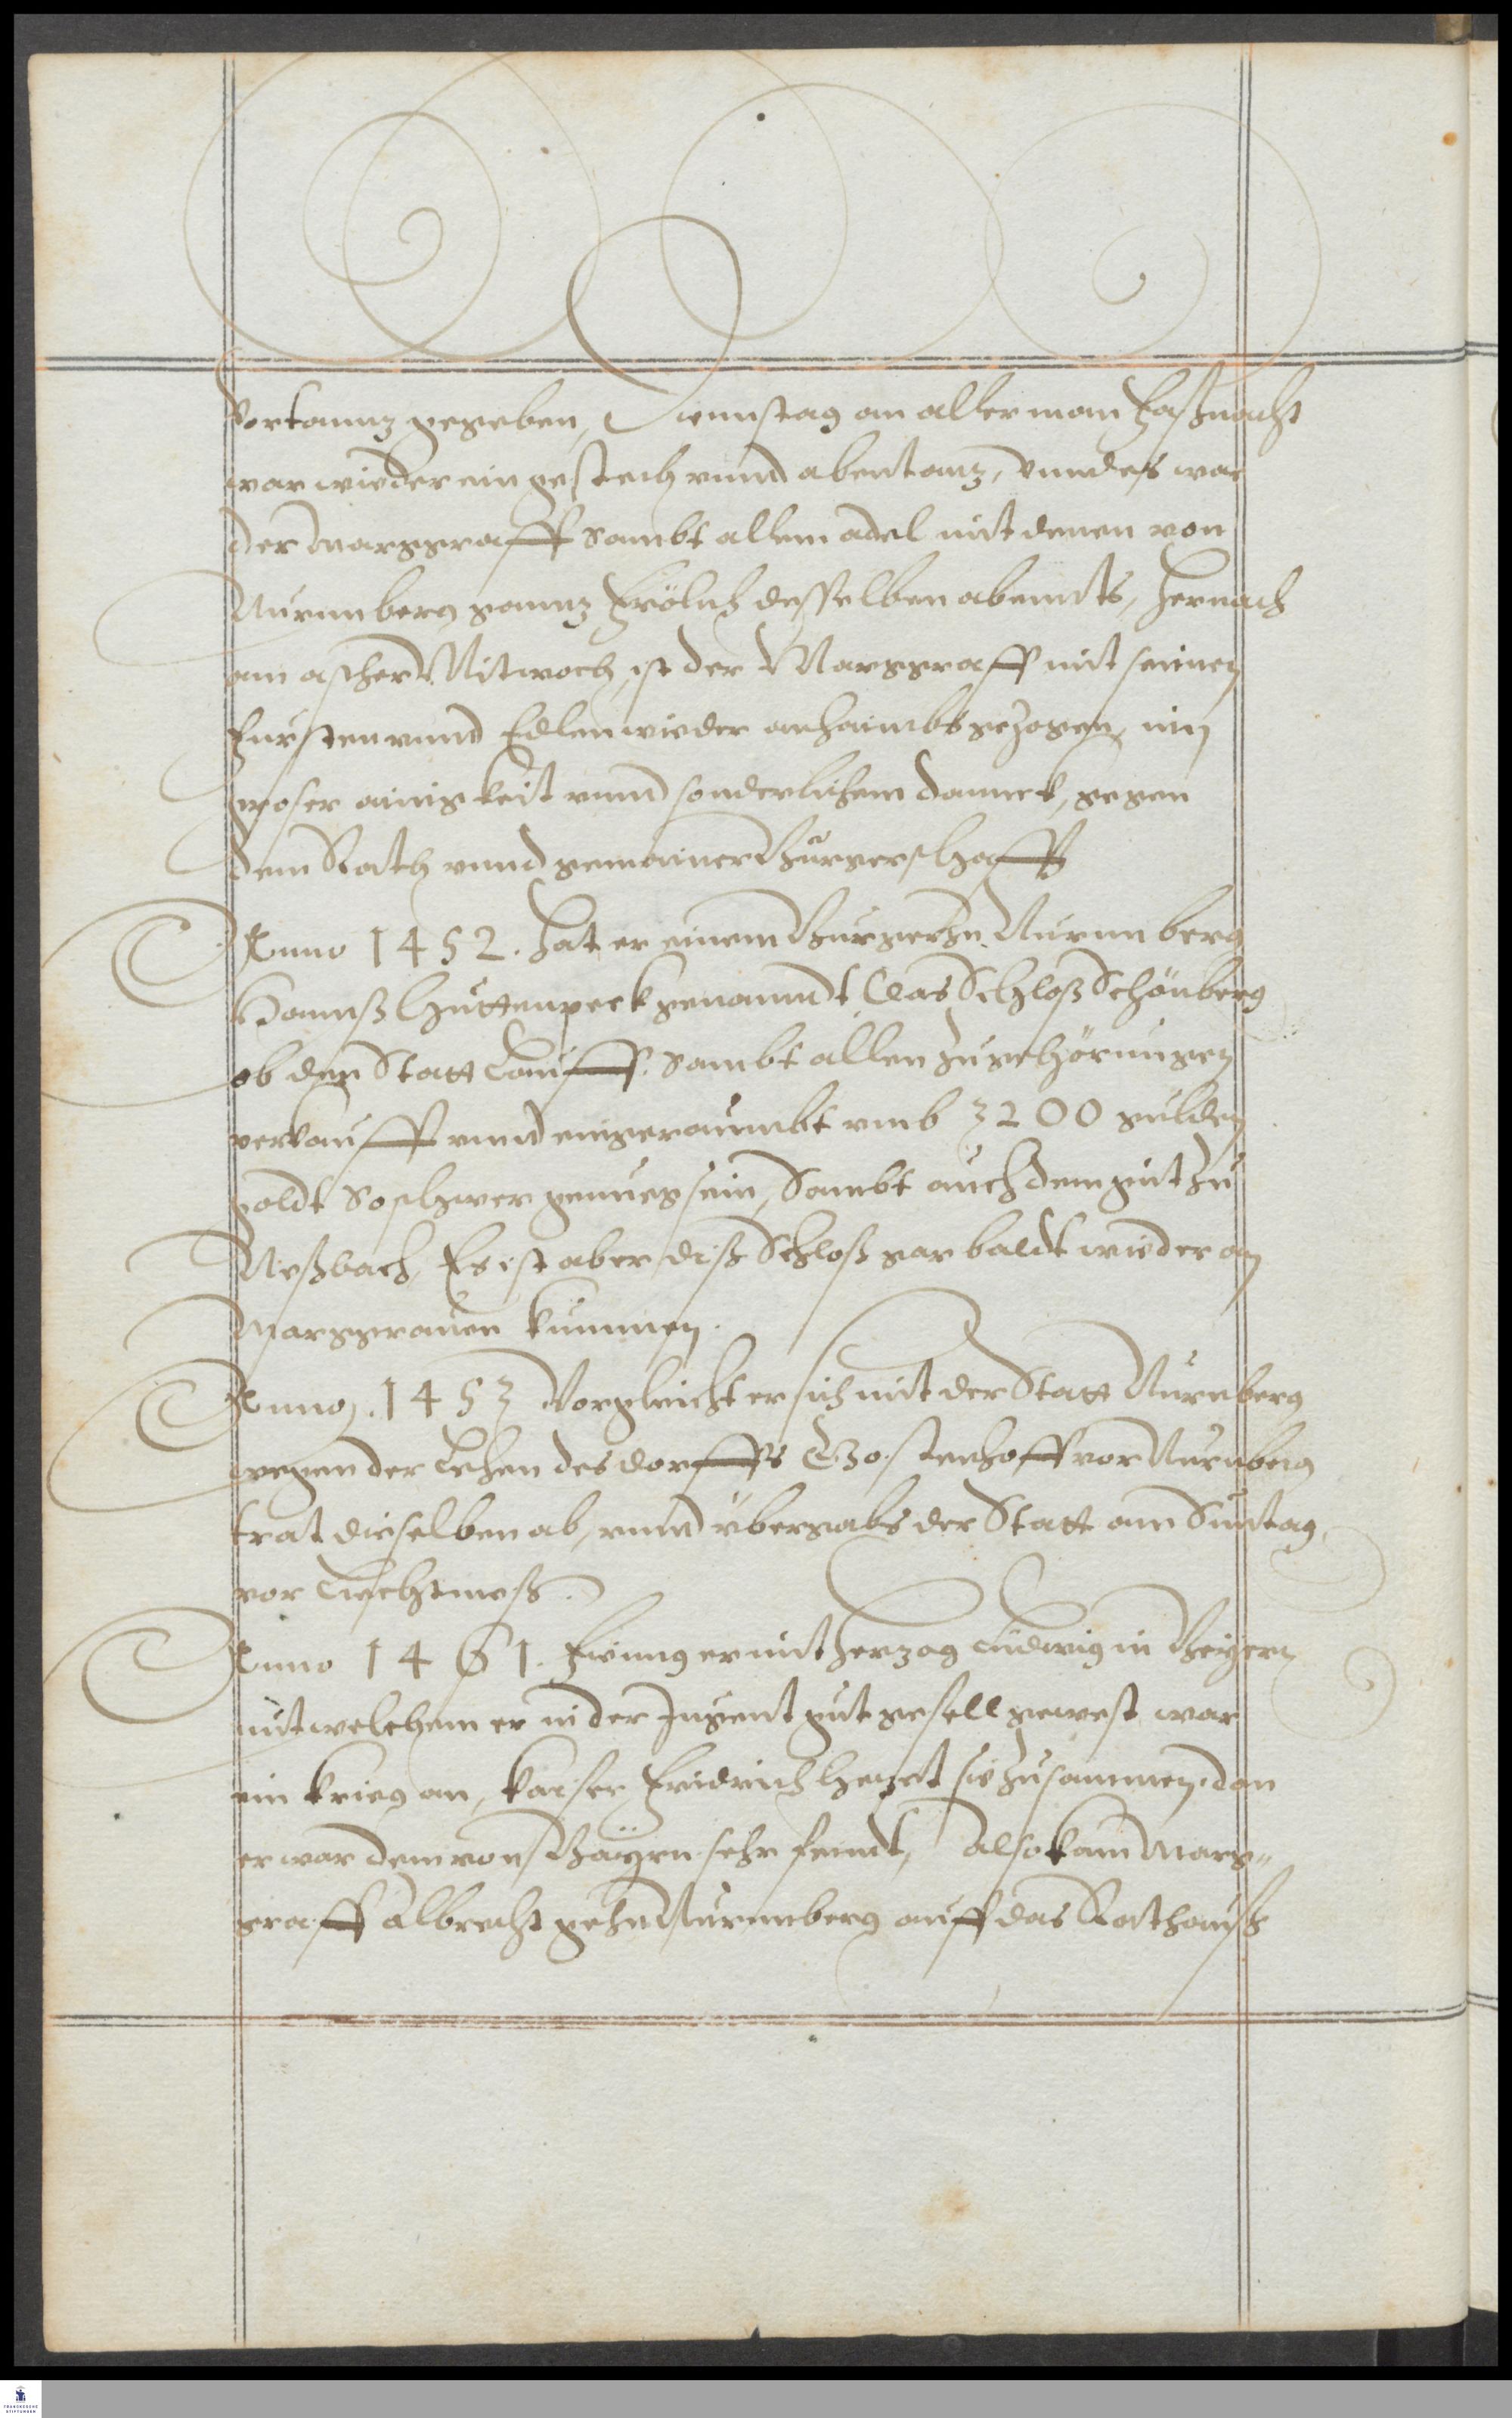 Vortanncz gegeben, Diennstag an aller man Faßnacht
war wieder ein gestech vnnd abentanz, vnnd es war
der Marggraff sambt allem adel mit denen von
Nurmnberg ganncz frölich desselben abenndts, hernach
am ascher Mitwoch ist der Marggraff mit seinen
Fürsten vnnd Edlen wieder anhaimbs gezogen, inn
groser ainigkeit vnnd sonderlichem dannck, gegen
dem Rath vnnd gemainer Burgerschafft
Anno 1452. hat er einem Burger zu Nurmnberg
Hannß Huttenpeck genanndt, das Schloß Schönberg
ob der Statt Lauff. sambt allen zugehörungen
verkaufft vnnd eingeraumbt vmb 3200 gulden
goldt so schwer genueg sein, Sambt auch dem gut zu
Nießbach, Es ist aber diß Schloß gar baldt wieder an
Marggrauen kummen.
Anno. 1453 Vorgleicht er sich mit der Statt Nurnberg
wegen der Lehen des dorffs Gostenhoff vor Nurnberg
trat dieselben ab, vnnd übergabs der Statt am Suntag
vor Liechtmeß.
Anno 1461. Fienng er mit Herzog Ludwig in Beyern
mit welchem er in der Jugent gut gesell gewest war
ein krieg an, kaiser Fridrich hezet sie zusammen, dan
er war dem von Bayrn sehr feindt, Also kam Marg„
graff Albrecht gehn Nurmnberg auff das Rathauß